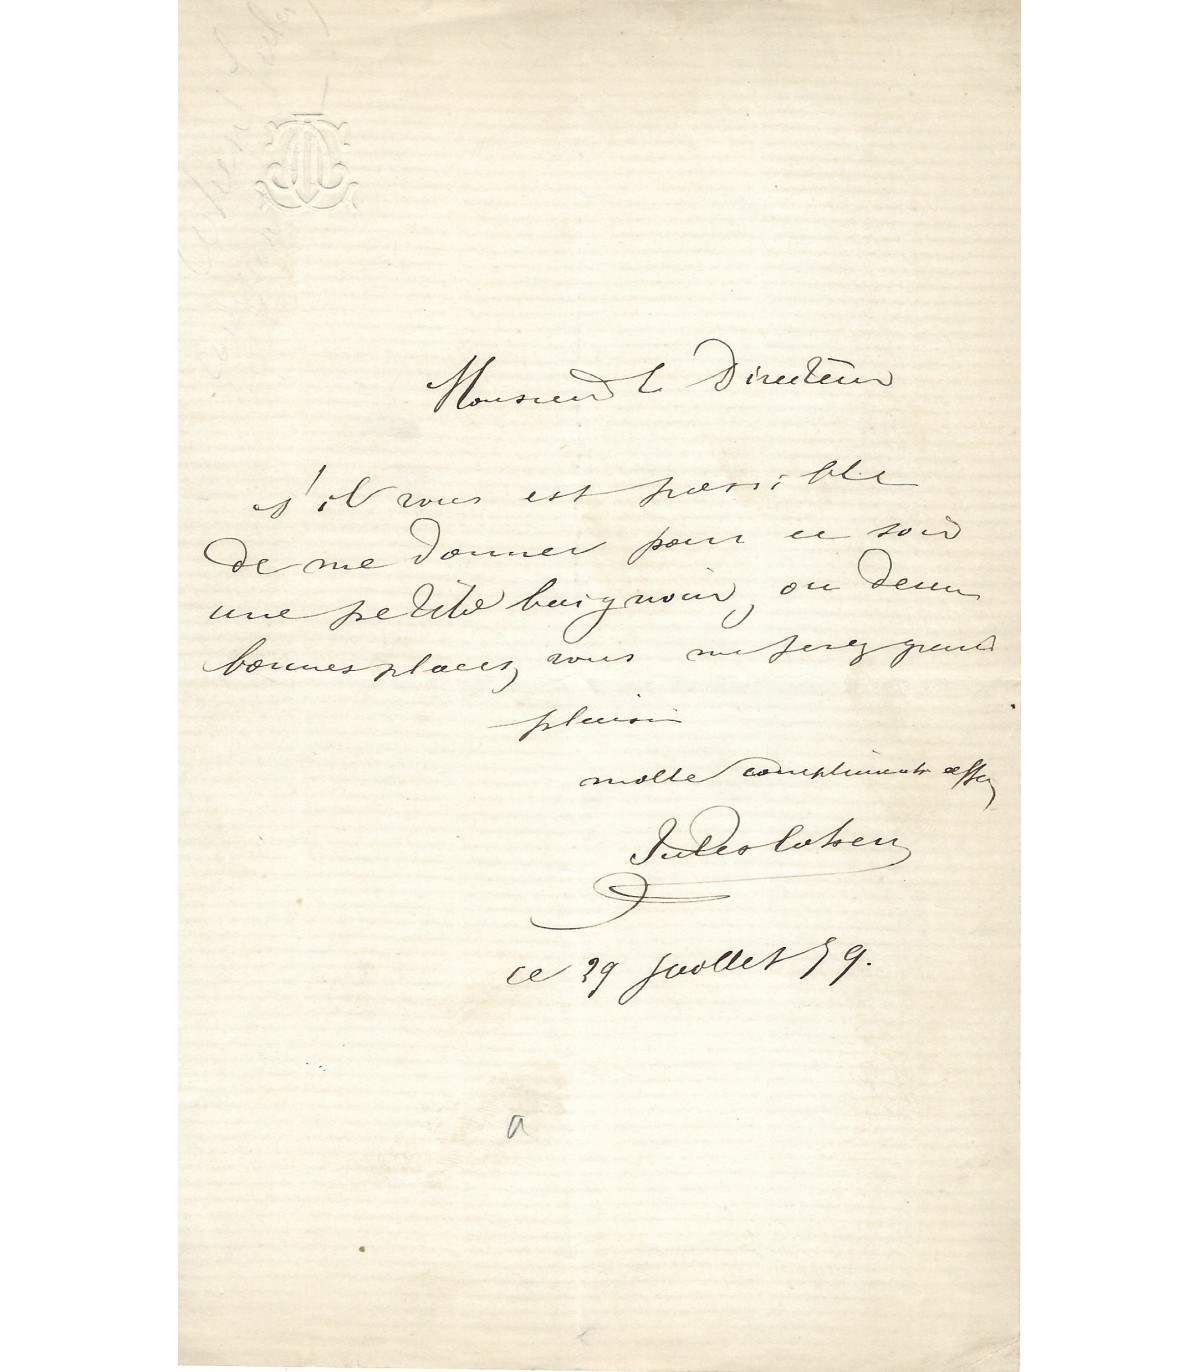 Monsieur le Directeur
s'il vous est possible
de me donner pour ce soir
une petite baignoire, ou deux
bonnes places, vous me ferez grand
plaisir
mille compliments affec
Jules Cohen
ce 29 juillet 79.
a